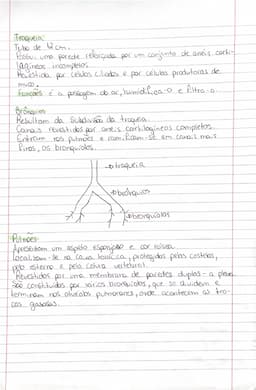 Traqueia
Tubo de 12 cm.
Possui uma parede reforçada por um conjunto de anéis carti-
lagíneos incompletos.
Revestida por células ciliadas e por células produtoras de
muco.
Função: é a passagem do ar, humidifica-o e filtra-o.
Brônquios
Resultam da subdivisão da traqueia.
Canais revestidos por anéis cartilagíneos completos.
Entram nos pulmões e ramificam-se em canais mais
finos, os bronquíolos.
traqueia
brônquios
bronquíolos
Pulmões
Apresentam um aspeto esponjoso e cor rosea.
Localizam-se na caixa torácica, protegidos pelas costelas,
pelo esterno e pela coluna vertebral.
Revestidos por uma membrana de paredes duplas - a pleura
São constituídos por vários bronquíolos, que se dividem e
terminam nos alvéolos pulmonares, onde acontecem as tro-
cas gasosas.